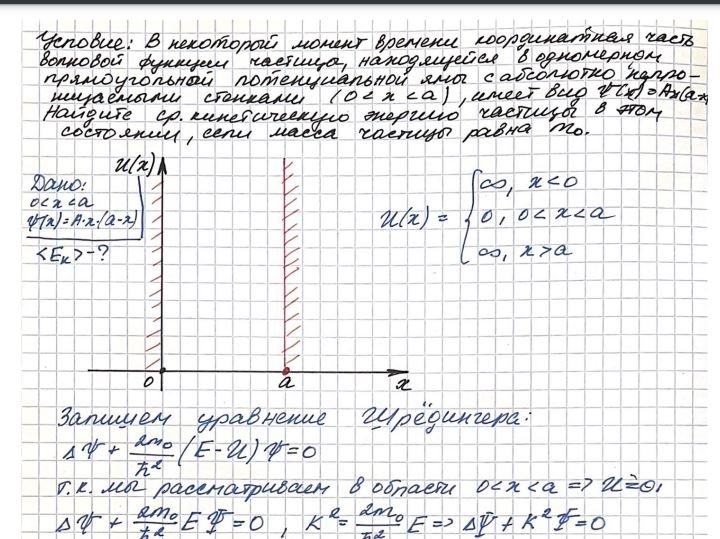 Условие: В некоторый момент времени координатная часть
волновой функции частицы, находящейся в одномерном
прямоугольный потенциальной ямы с абсолютно непро-
ницаемыми стенками (0<x<a), имеет вид Ψ(x)=Ax(a-x
Найдите ср. кинетическую энергию частицы в этом
состоянии, если масса частицы равна m₀.
U(x)
Дано:
0<x<a
Ψ(x)=A·x·(a-x)
<Eₖ>-?
U(x) = { ∞, x<0
0, 0<x<a
∞, x>a
0 a x
Запишем уравнение Шрёдингера:
ΔΨ + 2m₀/ħ² (E-U)Ψ=0
т.к. мы рассматриваем в области 0<x<a => U=0,
ΔΨ + 2m₀/ħ² EΨ=0, K²= 2m₀/ħ² E => ΔΨ+K²Ψ=0